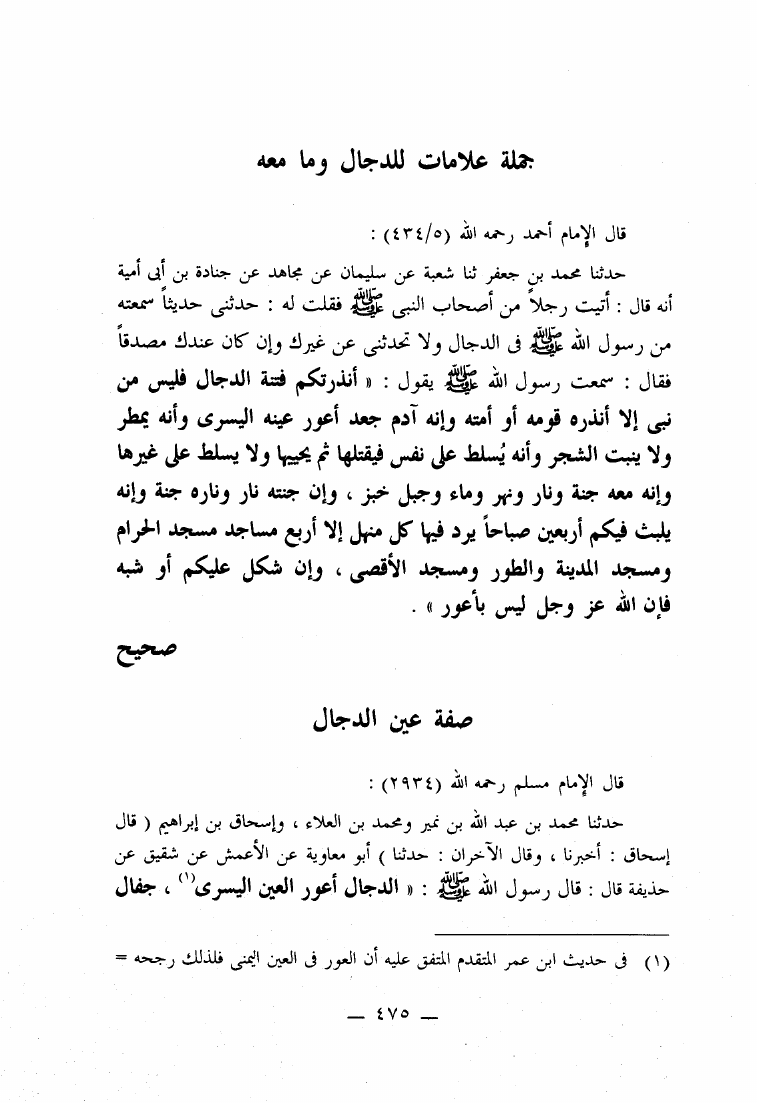 جملة علامات للدجال وما معه
قال الإمام أحمد رحمه الله (٤٣٤/٥) :
حدثنا محمد بن جعفر ثنا شعبة عن سليمان عن مجاهد عن جنادة بن أبى أمية
أنه قال : أتيت رجلاً من أصحاب النبى ﷺ فقلت له : حدثنى حديثاً سمعته
من رسول الله ﷺ فى الدجال ولا تحدثنى عن غيرك وإن كان عندك مصدقاً
فقال : سمعت رسول الله ﷺ يقول : « أنذرتكم فتنة الدجال فليس من
نبى إلا أنذره قومه أو أمته وإنه آدم جعد أعور عينه اليسرى وأنه يمطر
ولا ينبت الشجر وأنه يُسلط على نفس فيقتلها ثم يحييها ولا يسلط على غيرها
وإنه معه جنة ونار ونهر وماء وجبل خبز ، وإن جنته نار وناره جنة وإنه
يلبث فيكم أربعين صباحاً يرد فيها كل منهل إلا أربع مساجد مسجد الحرام
ومسجد المدينة والطور ومسجد الأقصى ، وإن شكل عليكم أو شبه
فإن الله عز وجل ليس بأعور » .
صحيح
صفة عين الدجال
قال الإمام مسلم رحمه الله (٢٩٣٤) :
حدثنا محمد بن عبد الله بن نمير ومحمد بن العلاء ، وإسحاق بن إبراهيم ( قال
إسحاق : أخبرنا ، وقال الآخران : حدثنا ) أبو معاوية عن الأعمش عن شقيق عن
حذيفة قال : قال رسول الله ﷺ : « الدجال أعور العين اليسرى(١) ، جفال
(١) فى حديث ابن عمر المتقدم المتفق عليه أن العور فى العين اليمنى فلذلك رجحه =
— ٤٧٥ —